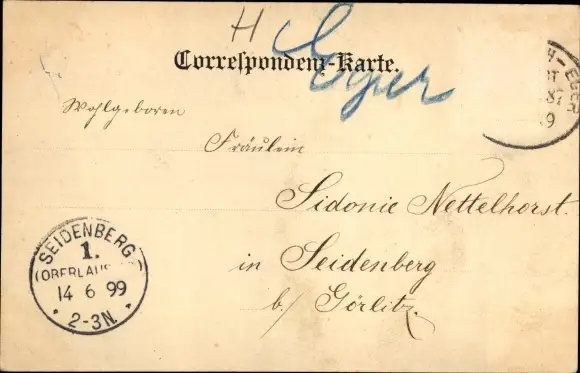 H Eger
Correspondenz-Karte.
Wohlgeboren
Fräulein
Sidonie Nettelhorst.
in Seidenberg
b/ Görlitz.
SEIDENBERG
1.
(OBERLAUS
14 6 99
* 2-3N. *
EGER